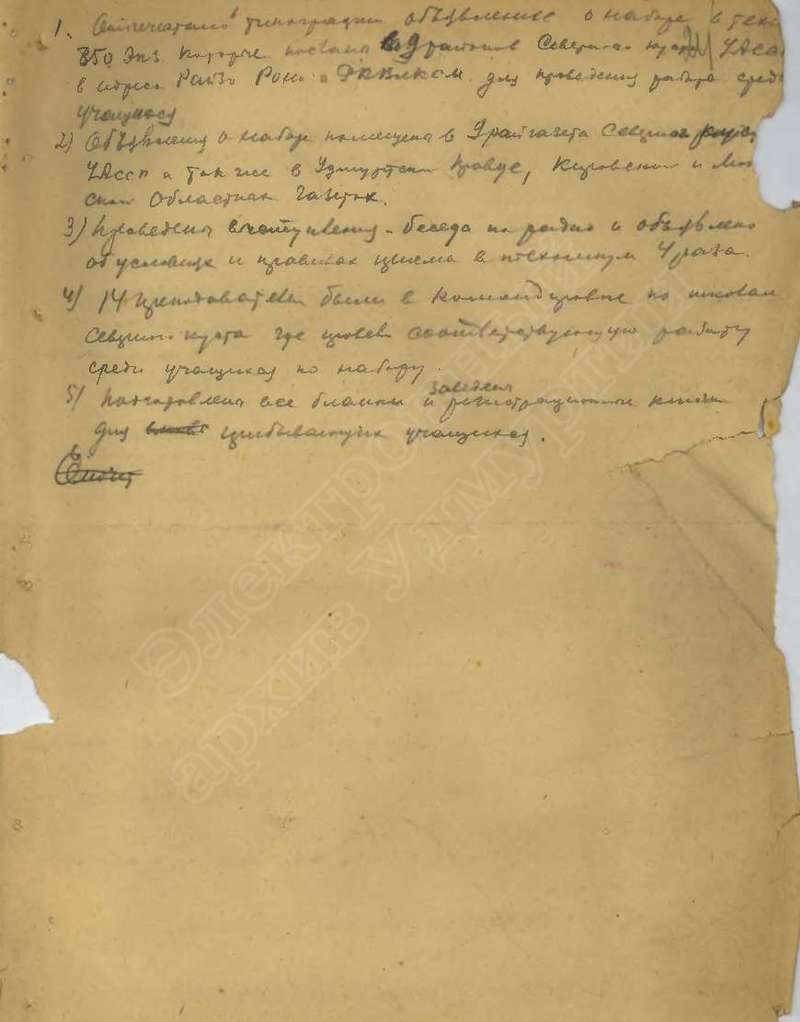 1. Отпечатано в типографии объявление о наборе в техн
850 Экз. которые посланы в 9 районов Северного куста УАсс
в адреса Райзо Роно и РКВЛКСМ. для проведения работы среди
учащихся
2) Объявления о наборе помещено в 9 райгазета Северного куста
УАссп а также в Удмуртской правде, Кировской и Мо
ской Областных газетах.
3) Проведена выступления - беседа по радио и объявлено
об условиях и правилах приема в техникум 4 раза.
4) 14 преподавателей были в командировке по школам
Северного куста где провели соответствующую работу
среди учащихся по набору.
заведена
5) Подготовлена все бланки и регистрационная книга
для прибывающих учащихся.
6)
Электронный
архив Удмуртии